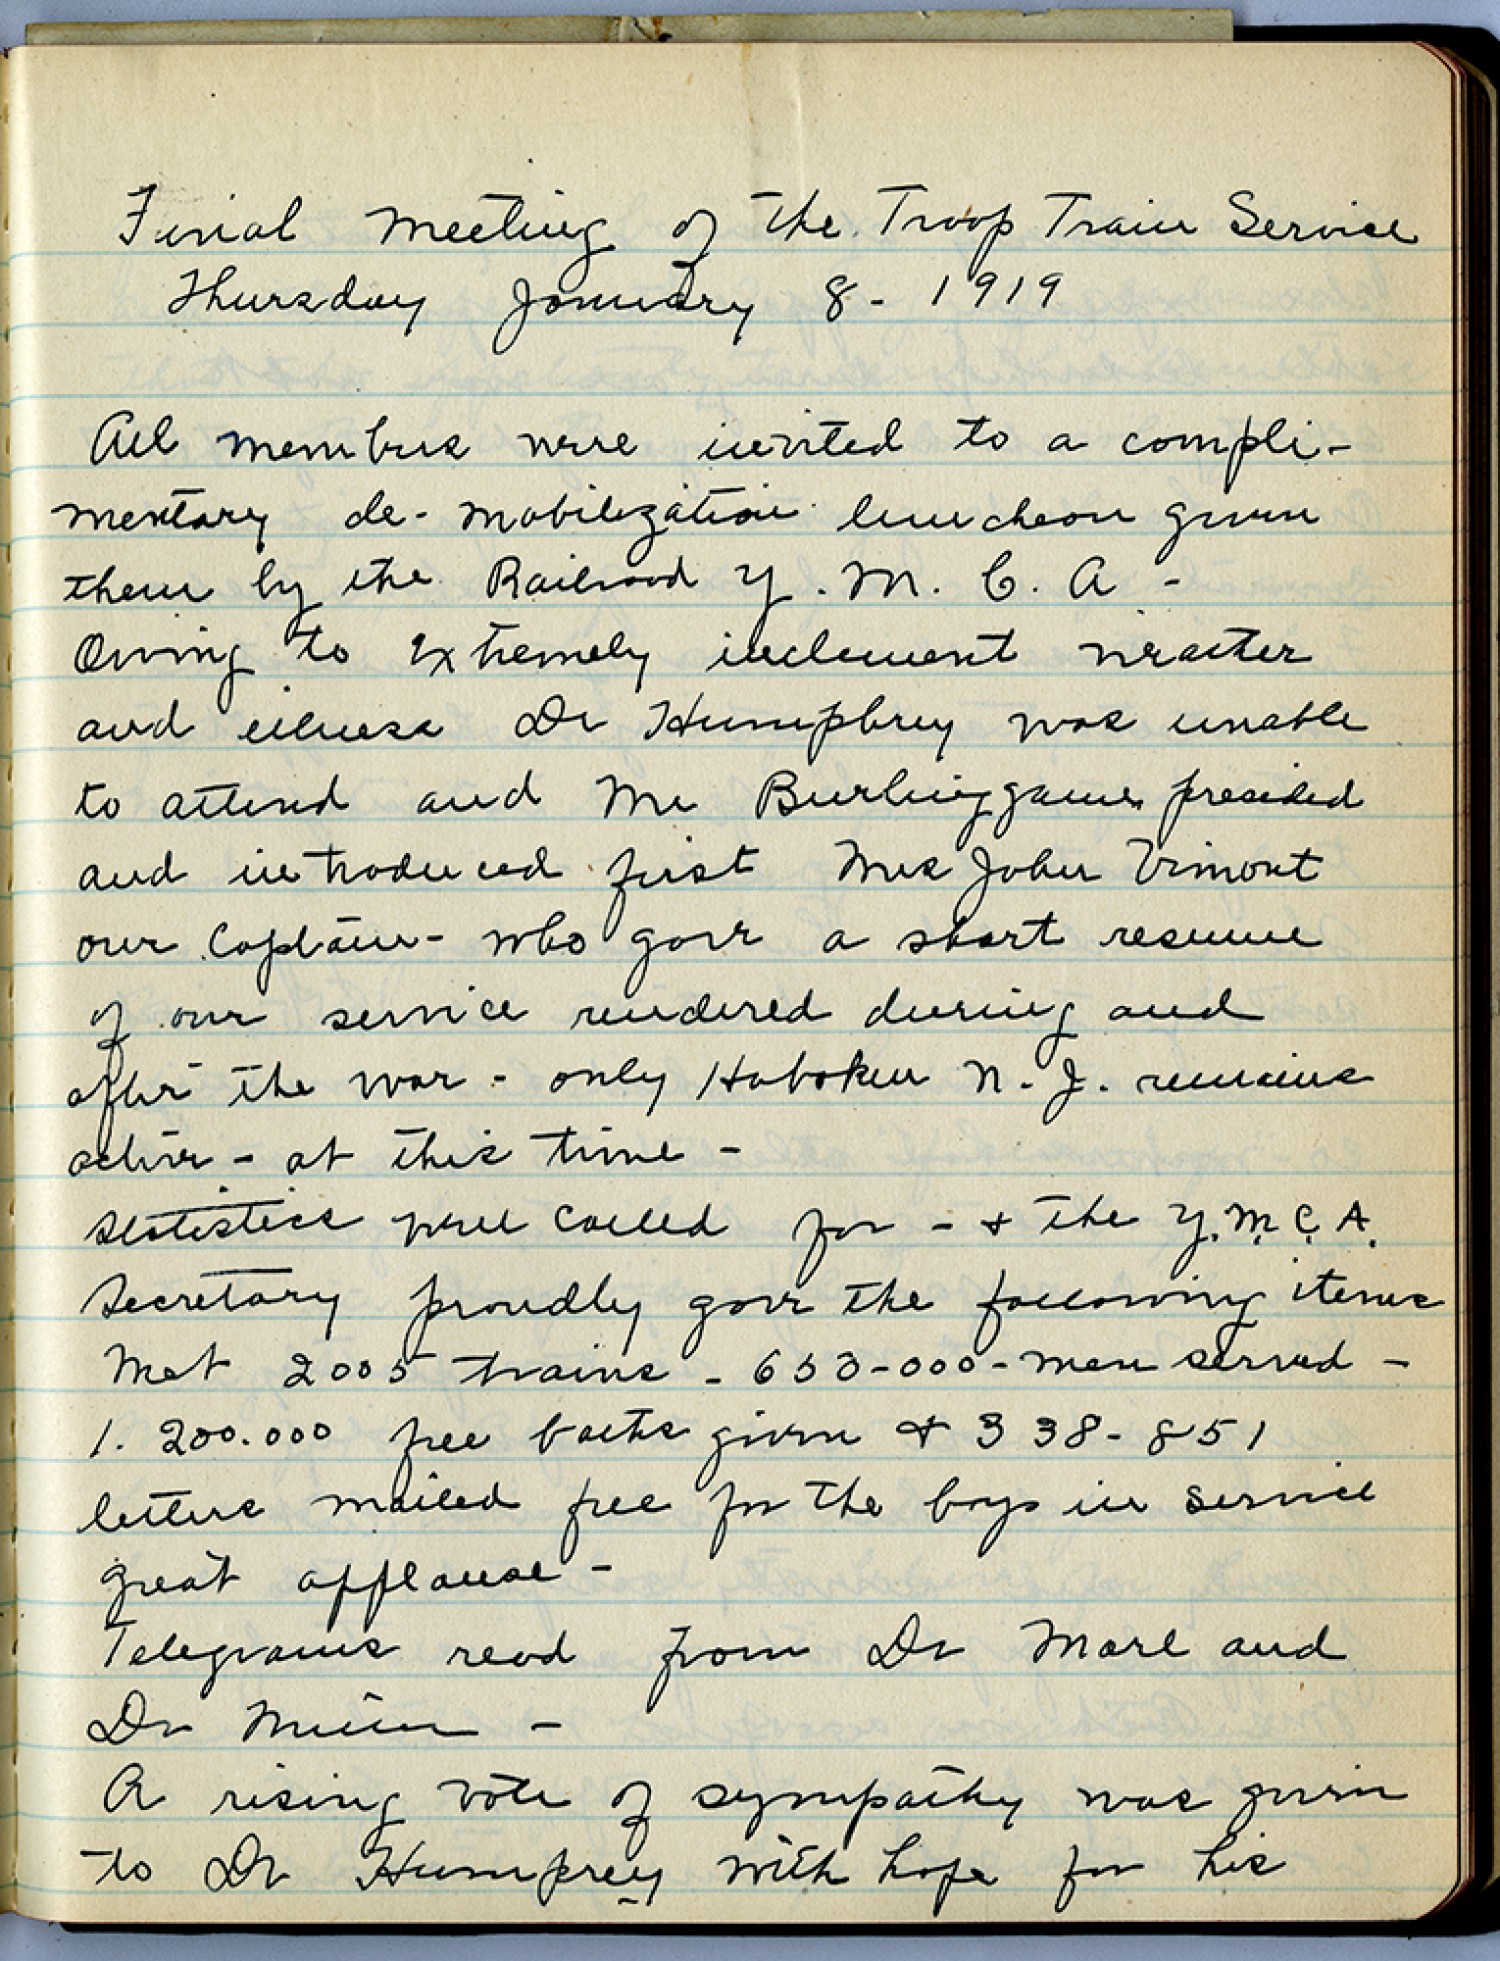 Finial Meeting of the Troop Train Service
Thursday January 8 - 1919
All members were invited to a compli-
mentary de-mobilization luncheon given
them by the Railroad Y. M. C. A -
Owing to extremely inclement weather
and illness Dr Humphrey was unable
to attend and Mr Burlinggame presided
and introduced first Mrs John Vimont
our Captain - who gave a short resume
of our service rendered during and
after the war - only Hoboken N. J. remains
active - at this time -
Statistics were called for - & the Y.M.C.A.
Secretary proudly gave the following items
Met 2005 trains - 653-000-men served -
1. 200.000 free baths given & 338-851
letters mailed free for the boys in service
great applause -
Telegrams read from Dr Marl and
Dr
A rising vote of sympathy was given
to Dr Humprey with hope for his